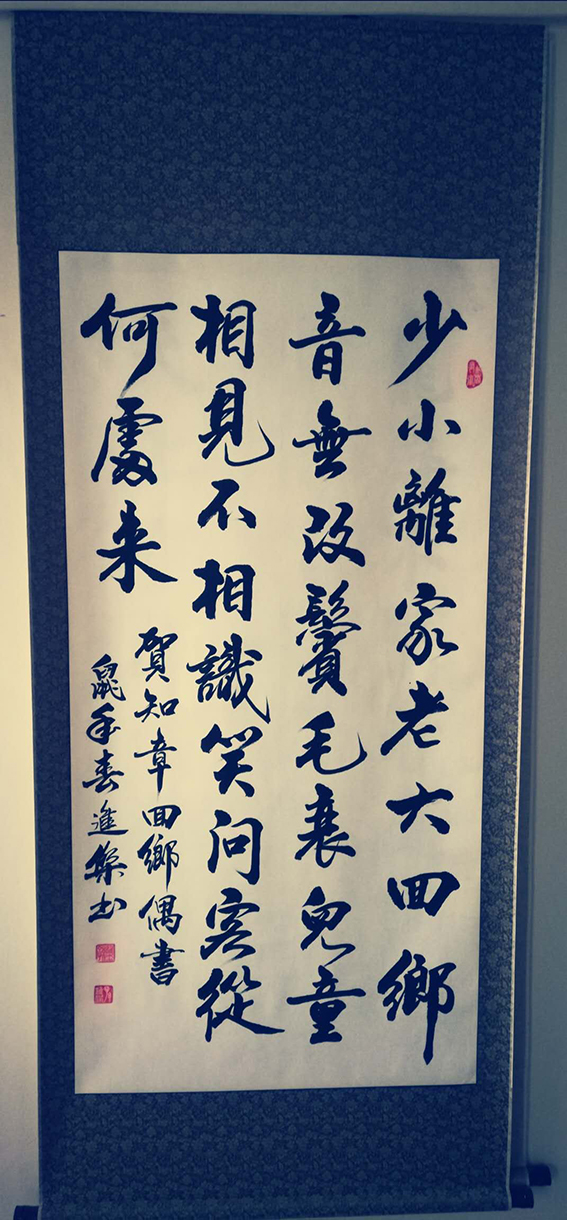 少小離家老大回鄉
音無改鬢毛衰兒童
相見不相識笑問客從
何處来
賀知章回鄉偶書
鼠年春進集书